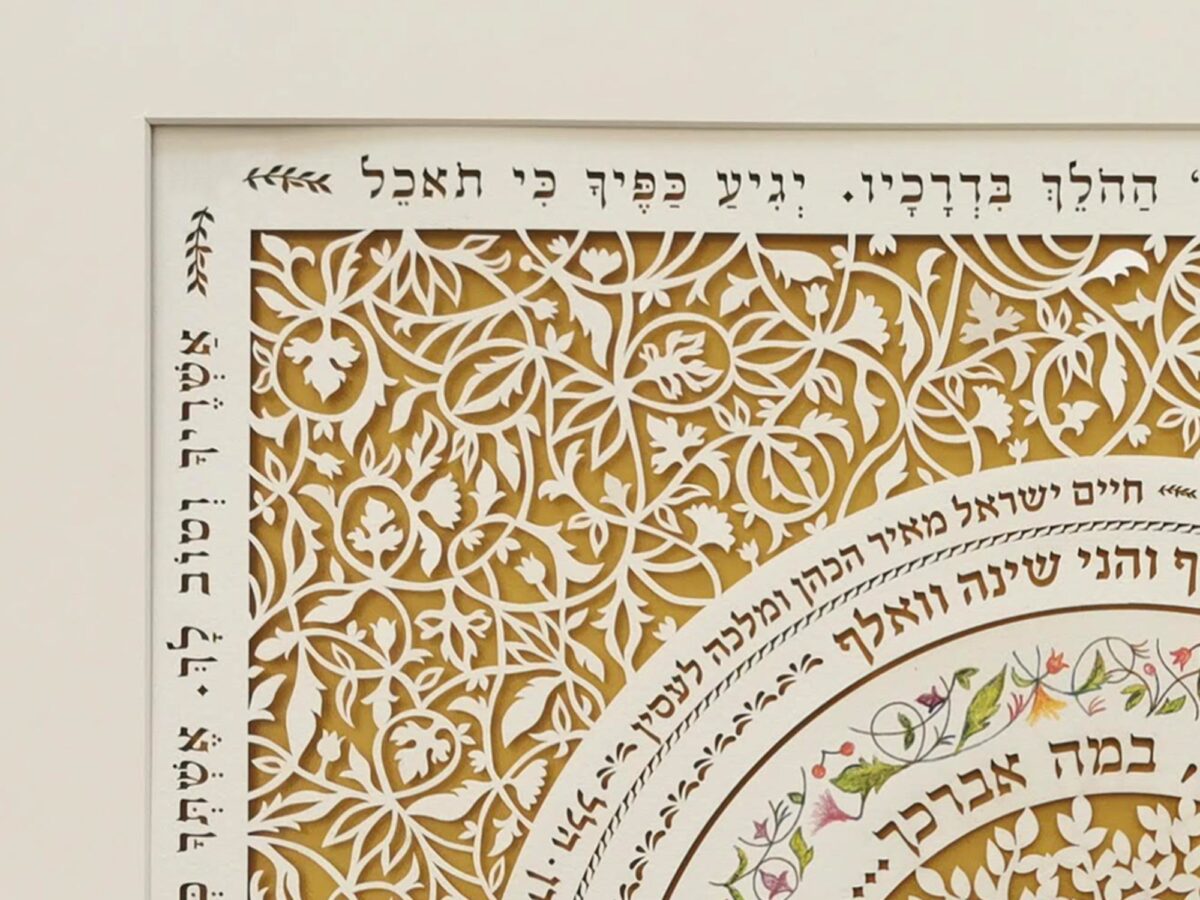 הַהֹלֵךְ בִּדְרָכָיו. יְגִיעַ כַּפֶּיךָ כִּי תֹאכֵל
אַשְׁרֶיךָ וְטוֹב לָךְ. אֶשְׁתְּךָ
חיים ישראל מאיר הכהן ומלכה לעסין
הלל
והני שינה וואלף
במה אברכך...